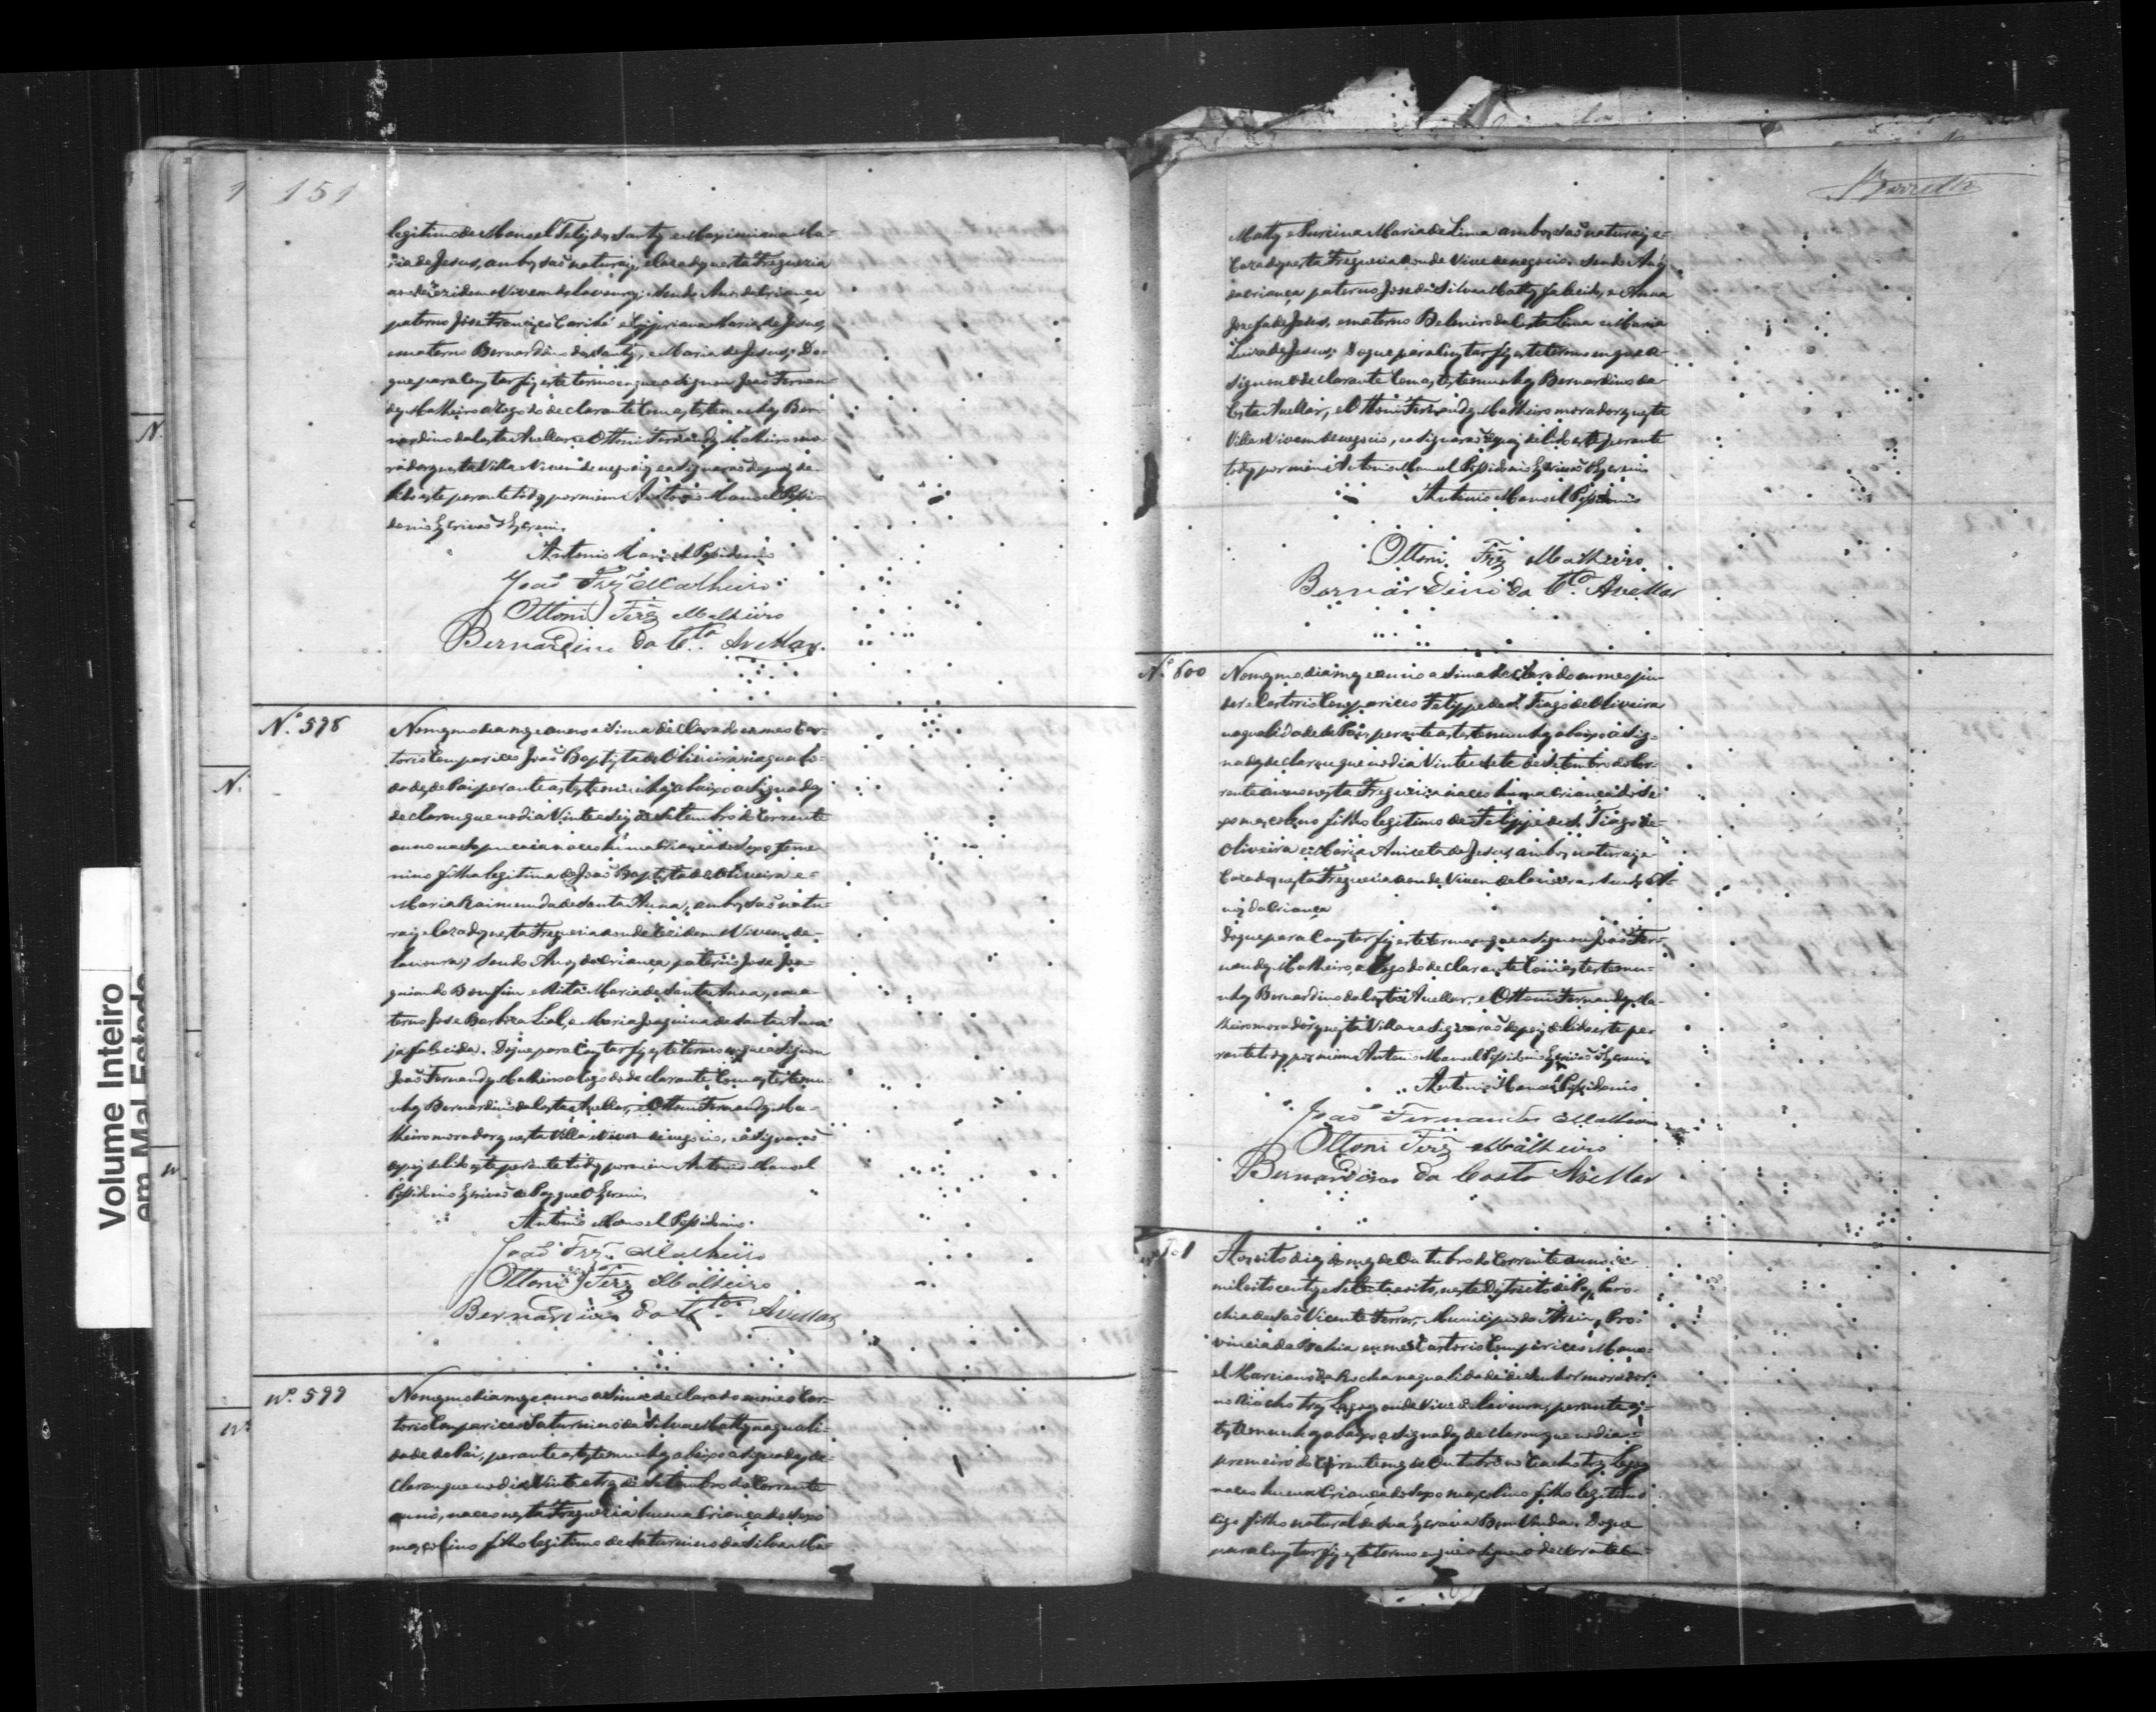 151
legitimo de Manoel Felis dos Santos e Maximiana Ma-
ria de Jesus, ambos saõ naturaes, e Cazados nesta Freguezia
aonde rezidem e Vivem de lavoura; Sendo Avos da Criança
paterno Jose Francisco e Cypriana Maria de Jesus,
ematerno Bernardino dos Santos, e Maria de Jesus; Do
que para Constar fiz este termo em que a Signou Joaõ Fernan-
des Malheiro a Rogo do declarante Com as testemunhas Ber-
nardino da Costa Avellar e Ottoni Fernandes Malheiro mo-
radores nesta Villa e Vivem de negocio e asignaraõ depois de
lido este perante todos por mim Antonio Manoel Possi-
donio Escrivaõ o Escrevi.
Antonio Manoel Possidonio
Joaõ Frz Malheiro
Ottoni Frz Malheiro
Bernardino da Cta Avellar.
Nº. 598
No mesmo dia mes e anno asima declarado em meo Car-
torio Compariceo Joaõ Baptista de Oliveira na quali-
dade de Pai perante as testemunhas abaixo a Signados
declarou que no dia Vinte e Seis de Setembro do Corrente
anno naceo huma Criança do Sexo feme-
nino filha legitima de Joaõ Baptista de Oliveira e
Maria Raimunda de Santa Anna, ambos saõ natu-
raes e Cazados nesta Freguezia aonde rezidem e Vivem de
lavoura; Sendo Avos da Criança paterno Jose Joa-
quim do Bomfim e Rita Maria de Santa Anna, ema-
terno Jose Barboza Lial, e Maria Joaquina de Santa Anna
ja falecida. Do que para Constar fiz este termo em que a Signou
Joaõ Fernandes Malheiro a Rogo do declarante Com as testemu-
nhas Bernardino da Costa Avellar, e Ottoni Fernandes Ma-
lheiro moradores nesta Villa e Vivem de negocio, e asignaraõ
depois de lido este perante todos por mim Antonio Manoel
Possidonio Escrivaõ de Paz que o Escrevi.
Antonio Manoel Possidonio.
Joaõ Frz. Malheiro
Ottoni Frz Malheiro
Bernardino da Cta Avellar
Nº. 599
No mesmo dia mes e anno asima declarado em meo Car-
torio Compariceo Saturnino da Silva Mattos na quali-
dade de Pai, perante as testemunhas abaixo a Signados de-
clarou que no dia Vinte e tres de Setembro do Corrente
anno, naceo nesta Freguezia huma Criança do Sexo
mascolino filho legitimo de Saturnino da Silva Ma-
Barretto
Mattos e Maria de Lima ambos saõ naturaes e
Cazados nesta Freguezia aonde Vive de negocio. Sendo Avos
da criança paterno Jose da Silva Mattos falecido, e Anna
Jozefa de Jesus, ematerno Belmiro da Costa Lima e Maria
Luiza de Jesus; Do que para Constar fiz este termo em que a
Signou o declarante Com as testemunhas Bernardino da
Costa Avellar, e Ottoni Fernandes Malheiro moradores nesta
Villa e Vivem de negocio, e asignaraõ depois de lido este perante
todos por mim Antonio Manoel Possidonio Escrivaõ o Escrevi
Antonio Manoel Possidonio
Ottoni Frz Malheiro
Bernardino da Cta Avellar
Nº. 600
No mesmo dia mes e anno asima declarado em meo
Cartorio Compariceo Felippe de S. Tiago de Oliveira
na qualidade de Pai, perante as testemunhas abaixo a Sig-
nados declarou que no dia Vinte e Sete de Setembro do Cor-
rente anno nesta Freguezia naceo huma criança do Se-
xo mascolino filho legitimo de Felippe de S. Tiago de
Oliveira e Maria Aniceta de Jesus ambos naturaes e
Cazados nesta Freguezia aonde Vivem de lavoura Sendo A-
vos da Criança
Do que para Constar fiz este termo em que a Signou Joaõ Fer-
nandes Malheiro, a Rogo do declarante Com as testemu-
nhas Bernardino da Costa Avellar, e Ottoni Fernandes Ma-
lheiro moradores nesta Villa e asignaraõ depois de lido este pe-
rante todos por mim Antonio Manoel Possidonio Escrivaõ o Escrevi
Antonio Manoel Possidonio
Joaõ Fernandes Malheiro
Ottoni Frz Malheiro
Bernardino da Costa Avellar
Aos oito dias do mes de Outubro do Corrente anno de
mil oito centos e Setenta e oito, neste Districto de Paz Paro-
chia de Saõ Vicente Ferrer, Municipio do Provincia
vincia da Bahia em meo Cartorio Compariceo Mano-
el Marciano da Rocha na qualidade de Senhor morador
no Riacho tres Lagoas onde Vive de lavoura, perante as
testemunhas abaixo a Signados declarou que no dia
premeiro do Corrente mes de Outubro no Riacho tres Lagoas
naceo huma Criança do Sexo mascolino filho legitimo
digo filho natural de sua Escrava Bem Vinda. Do que
para Constar fiz este termo em que a Signou o declarante Com
Volume Inteiro
em Mal Estado